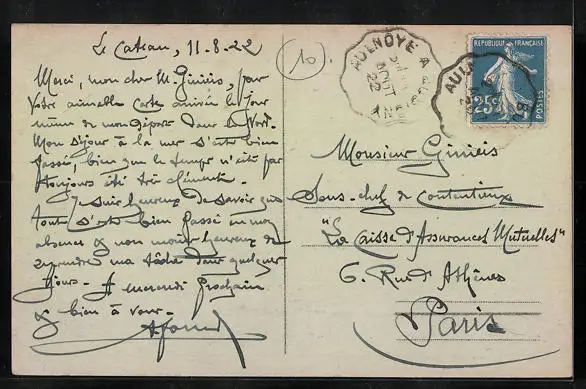 Le Cateau, 11-8-22
Merci, mon cher M. Giniès, pour
votre aimable carte arrivée le jour
même de mon départ dans le Nord.
Mon séjour à la mer s'est bien
passé, bien que le temps n'ait pas
toujours été très clément.
Je suis heureux de savoir que
tout s'est bien passé en mon
absence & non moins heureux de
reprendre ma tâche dans quelques
jours. A mercredi prochain
& bien à vous.
10
AULNOYE A
AOUT
22
AULN
REPUBLIQUE FRANÇAISE
25c
POSTES
Monsieur Giniès
Sous-chef de Contentieux
"La Caisse d'Assurances Mutuelles"
6. Rue d'Athènes
Paris